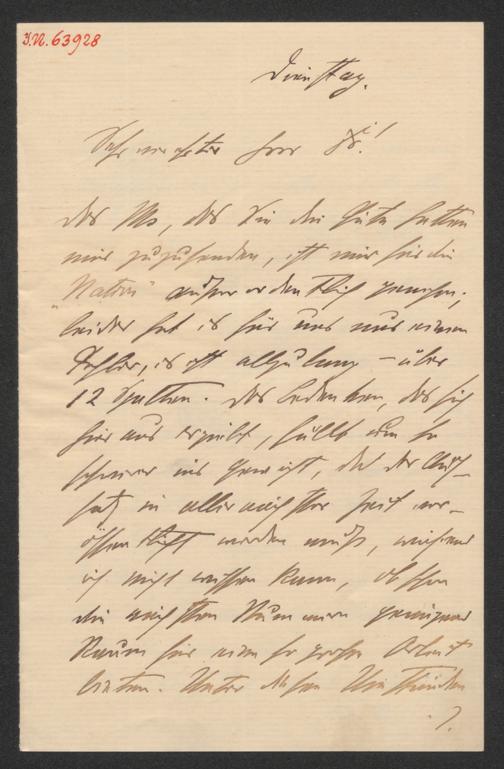 I.N. 63928
Dienstag.
Sehr verehrter Herr Dr.!
Das Ms, das Sie die Güte hatten
mir zuzusenden, ist mir für die
"Nation" außerordentlich genehm;
leider hat es für uns nur einen
Fehler, es ist allzulang – über
12 Spalten. Das Bedenken, das sich
hieraus ergiebt, fällt um so
schwerer ins Gewicht, als der Auf-
satz in allernächster Zeit ver-
öffentlicht werden muß, während
ich nicht wissen kann, ob schon
die nächsten Nummern genügend
Raum für eine so große Arbeit
bieten. Unter diesen Umständen